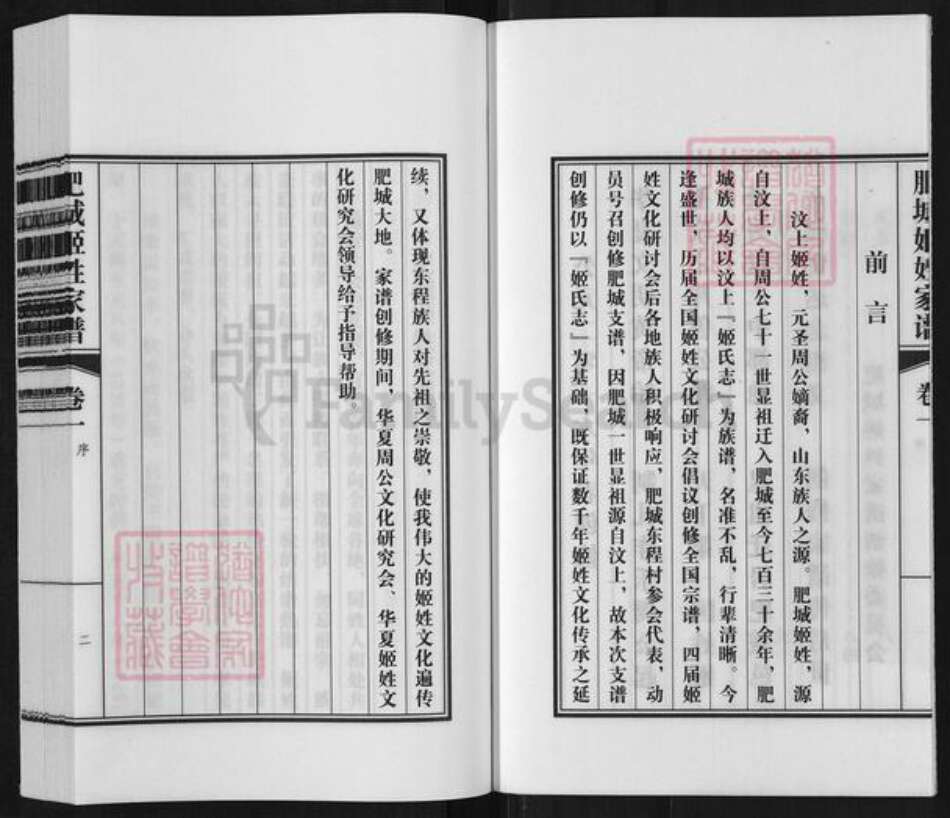 肥城姬姓家谱 卷一
前言
汶上姬姓，元圣周公嫡裔，山东族人之源。肥城姬姓，源
自汶上，自周公七十一世显祖迁入肥城至今七百三十余年，肥
城族人均以汶上『姬氏志』为族谱，名准不乱，行辈清晰。今
逢盛世，历届全国姬姓文化研讨会倡议创修全国宗谱，四届姬
姓文化研讨会后各地族人积极响应，肥城东程村参会代表，动
员号召创修肥城支谱，因肥城一世显祖源自汶上，故本次支谱
创修仍以『姬氏志』为基础，既保证数千年姬姓文化传承之延
续，又体现东程族人对先祖之崇敬，使我伟大的姬姓文化遍传
肥城大地。家谱创修期间，华夏周公文化研究会、华夏姬姓文
化研究会领导给予指导帮助。
肥城姬姓家谱 卷一 序 二
FamilySearch